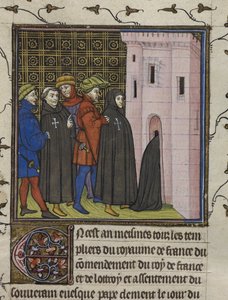 En cest an meismes tout les tem
pliers du royaume de france du
commendement du roy de france
et de lottroy et assentement du
souuerain euesque pape clement le jour du